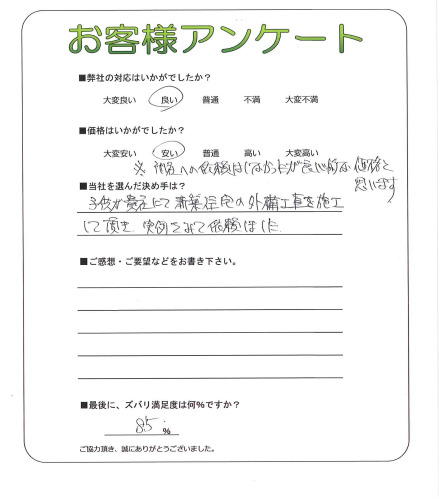 お客様アンケート
■弊社の対応はいかがでしたか？
大変良い 良い 普通 不満 大変不満
■価格はいかがでしたか？
大変安い 安い 普通 高い 大変高い
※ 他への依頼はしなかったが良心的な価格と
思います
■当社を選んだ決め手は？
子供が貴社にて新築住宅の外構工事を施工
して頂き 実例をみて依頼しました
■ご感想・ご要望などをお書き下さい。
■最後に、ズバリ満足度は何％ですか？
85 ％
ご協力頂き、誠にありがとうございました。